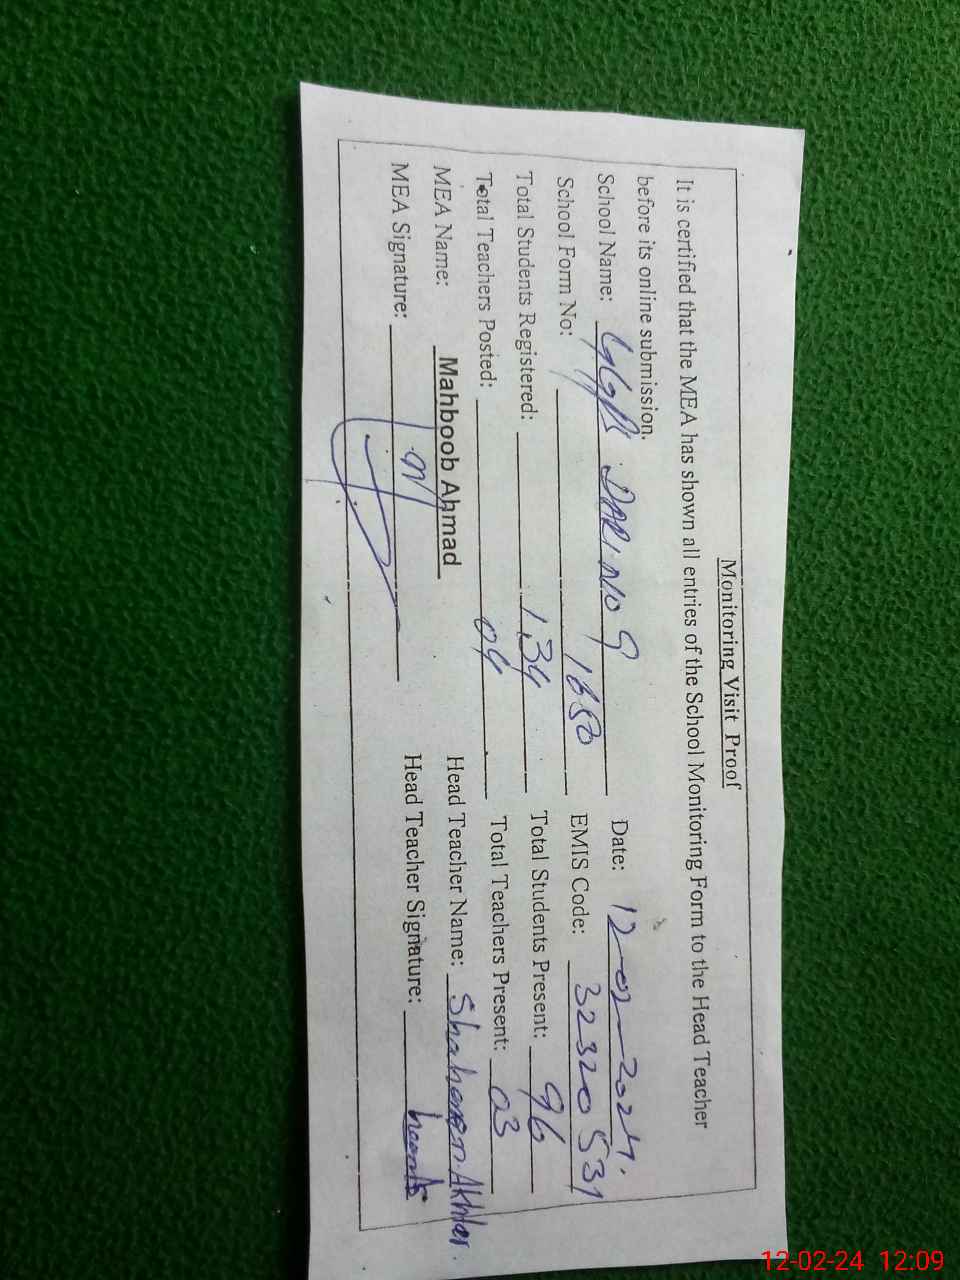 Monitoring Visit Proof
It is certified that the MEA has shown all entries of the School Monitoring Form to the Head Teacher
before its online submission.
School Name: GGPS DARI NO 9 Date: 12-02-2024.
School Form No: 1650 EMIS Code: 32320531
Total Students Registered: 134 Total Students Present: 96
Total Teachers Posted: 04 Total Teachers Present: 03
MEA Name: Mahboob Ahmad Head Teacher Name: Shaheen Akhter.
MEA Signature: Head Teacher Signature:
12-02-24 12:09